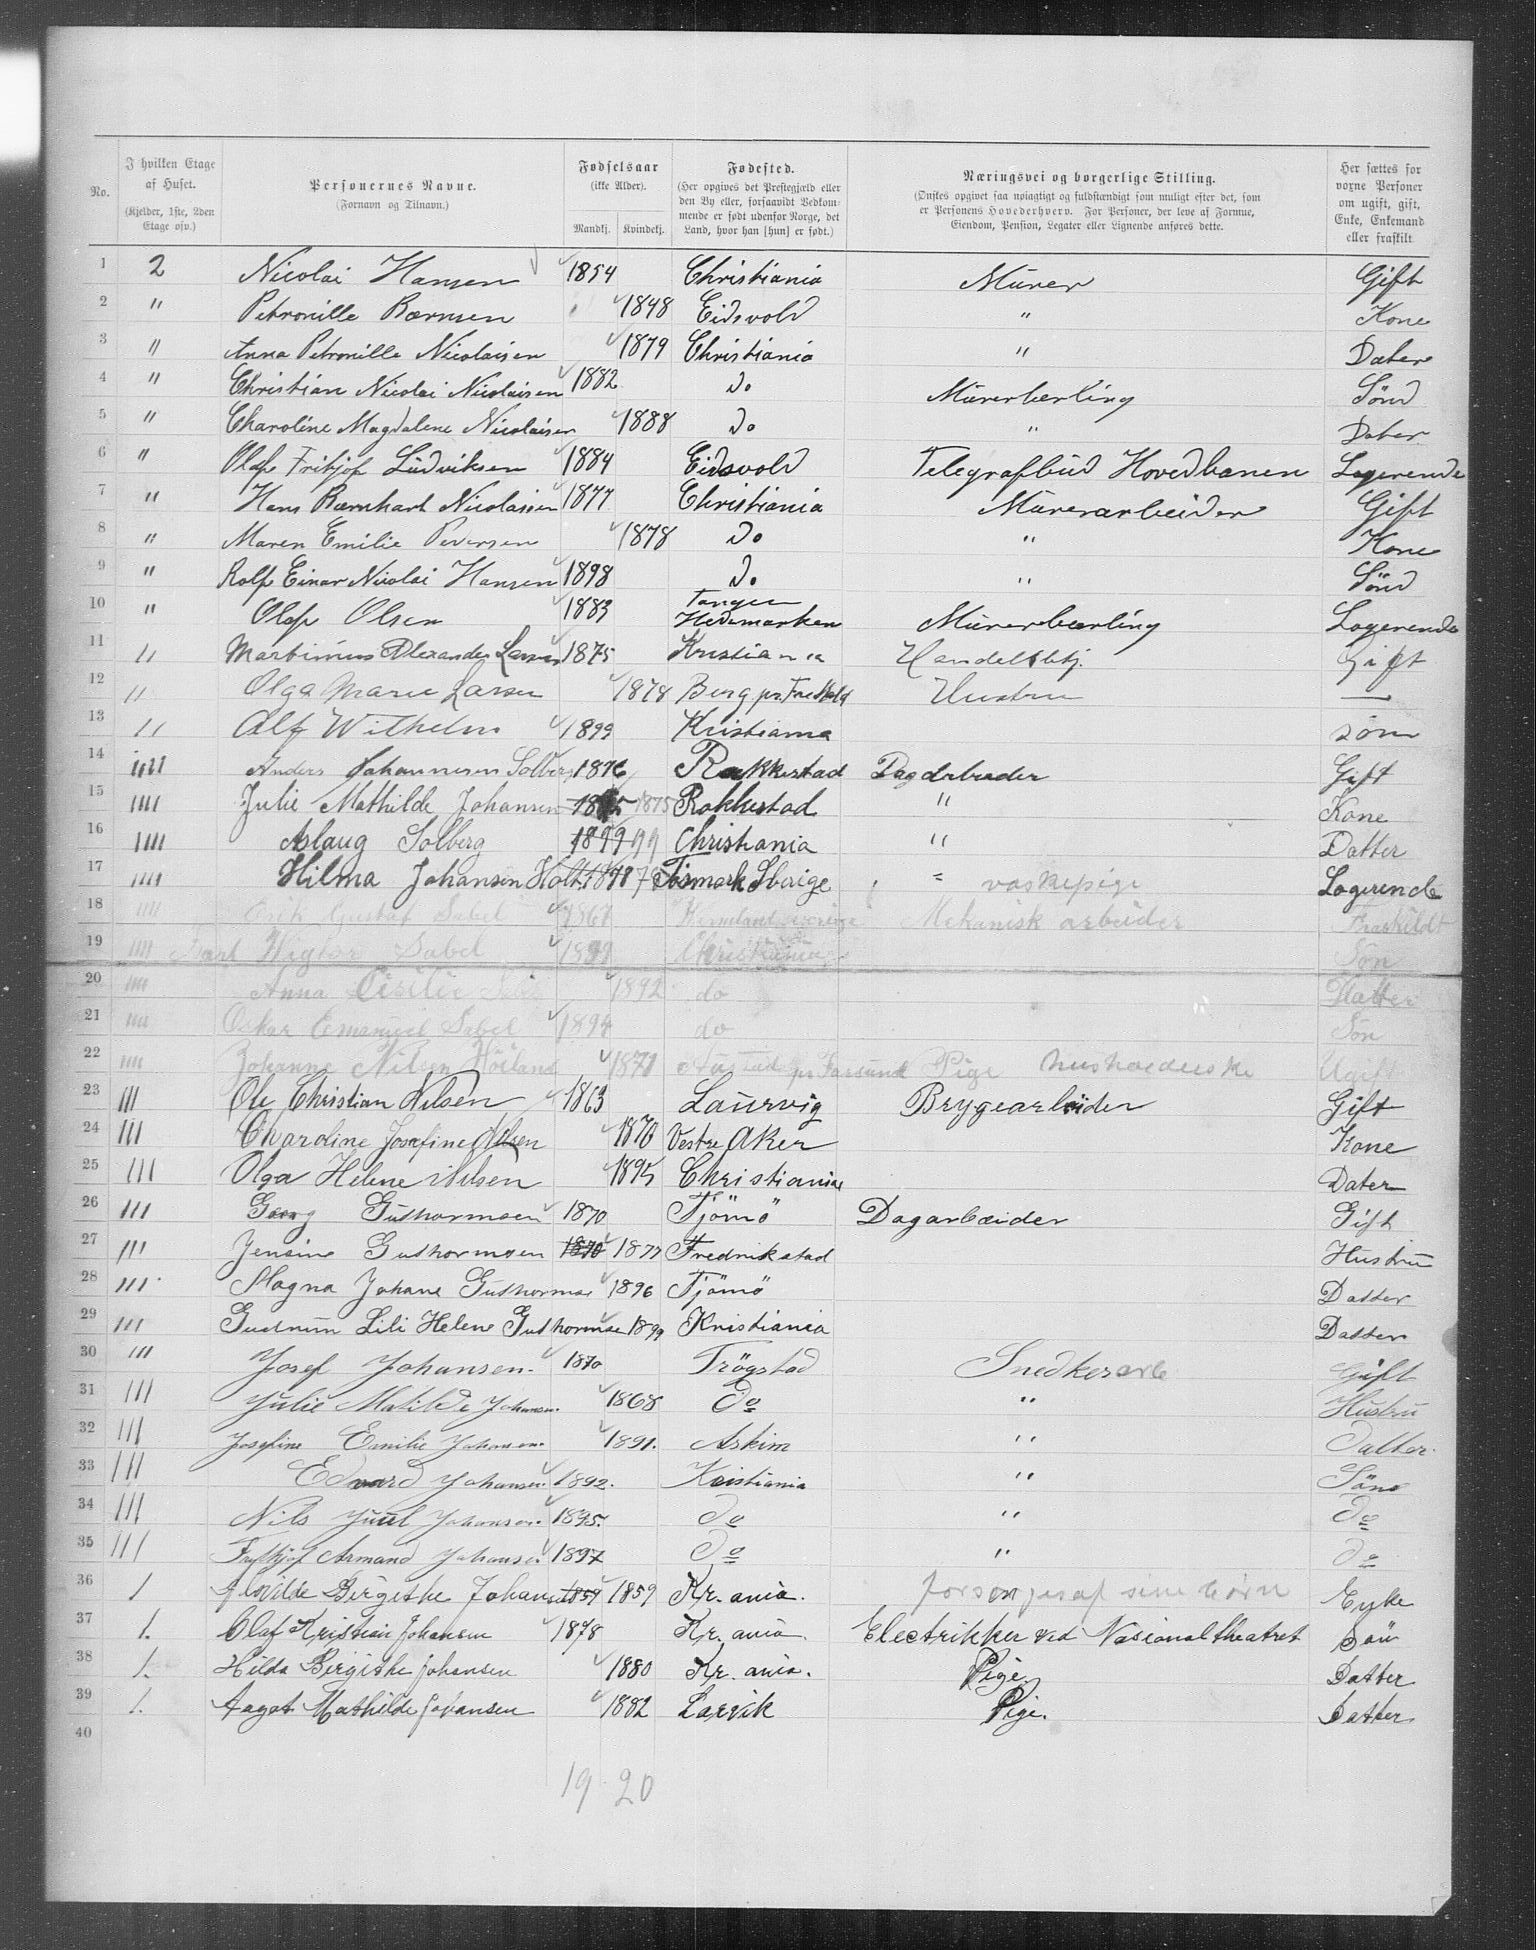 No.
I hvilken Etage af Huset. (Kjelder, 1ste, 2den Etage osv.)
Personernes Navne. (Fornavn og Tilnavn.)
Fødselsaar (ikke Alder). Mandkj. Kvindekj.
Fødested. (Her opgives det Prestegjæld eller den By eller, forsaavidt Vedkommende er født udenfor Norge, det Land, hvor han [hun] er født.)
Næringsvei og borgerlige Stilling. (Ønskes opgivet saa nøiagtigt og fuldstændigt som muligt efter det, som er Personens Hovederhverv. For Personer, der leve af Formue, Eiendom, Pension, Legater eller Lignende anføres dette.
Her sættes for voxne Personer om ugift, gift, Enke, Enkemand eller fraskilt
1 2 Nicolai Hansen 1854 Christiania Murer Gift
2 " Petronille Bærnsen 1848 Eidsvold " Kone
3 " Anna Petronille Nicolaisen 1879 Christiania " Dater
4 " Christian Nicolai Nicolaisen 1882 Do Murerlerling Sönd
5 " Charoline Magdalene Nicolaisen 1888 Do " Dater
6 " Olaf Fritjof Ludviksen 1884 Eidsvold Telegrafbud Hovedbanen Logerende
7 " Hans Bærnhart Nicolaisen 1877 Christiania Murerarbeider Gift
8 " Maren Emilie Petersen 1878 Do " Kone
9 " Rolf Einar Nicolai Hansen 1898 Do " Sönd
10 " Olaf Olsen 1883 Tangen Hedemarken Murerlærling Logerende
11 " Martinius Alexander Larsen 1875 Kristiania Handelsbtj. Gift
12 " Olga Marie Larsen 1878 Berg pr. Fredhald Hustru —
13 " Alf Wilhelm 1899 Kristiania søn
14 """ Anders Johannesen Solberg 1876 Rakkestad Dagarbeider Gift
15 """" Julie Mathilde Johansen 1875 Rakkestad " Kone
16 """" Aslaug Solberg 1899 99 Christiania " Datter
17 """" Hilma Johansen Holt 1878 78 vaskepige Logerende
18 """" Erik Gustaf Sabel 1867 Mekanisk arbeider Fraskildt
19 """" Sabel Christiania Søn
20 """" Anna Cisilie 1892 do Datter
21 """" Oskar Emanuel Sabel 1894 do Søn
22 """" Johanne Nilsen Höiland 1871 pr Farsund Pige husholderske Ugift
23 III Ole Christian Nilsen 1863 Laurvig Bryggearbeider Gift
24 III Charoline Josefine Nilsen 1870 Vestre Aker Kone
25 III Olga Helene Nilsen 1895 Christiania Dater
26 III Georg Guthormsen 1870 Tjömö Dagarbeider Gift
27 III Jensine Guthormsen 1870 1877 Fredrikstad Hustru
28 III Magna Johane Guthormse 1896 Tjömö Datter
29 III Gudrun Lili Helene Guthormse 1899 Kristiania Datter
30 III Josef Johansen. 1870 Trögstad Snedkerarb Gift
31 III Julie Matilde Johansen. 1868 Do " Hustru
32 III Josefine Emilie Johansen. 1891. Askim " Datter.
33 III Edvard Johansen. 1892. Kristiania " Söns
34 III Nils Juul Johansen. 1895. Do " Do
35 III Fritjof Armand Johansen 1897 Do " Do
36 1 Alovilde Birgithe Johansen 1859 1859 Kr. ania. forsørges af sine børn Enke
37 1. Olaf Kristian Johansen 1878 Kr. ania. Electrikker ved Nasionaltheatret Søn
38 1. Hilda Birgithe Johansen 1880 Kr. ania. Pige. Datter
39 1. Aagot Mathilde Johansen 1882 Larvik Pige. Datter
40
19 - 20